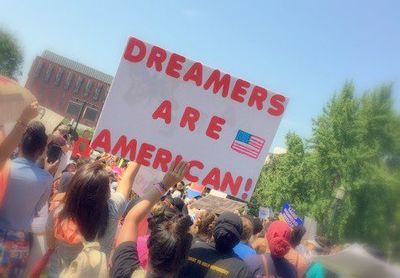 DREAMERS
ARE
AMERICAN!